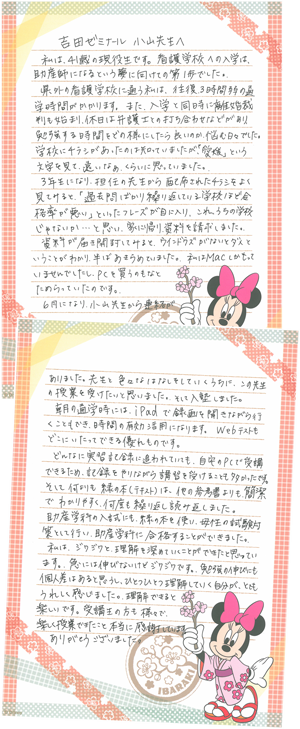 吉田ゼミナール 小山先生へ
私は、41歳の現役生です。看護学校への入学は、
助産師になるという夢に向けての第1歩でした。
県外の看護学校に通う私は、往復3時間半の通
学時間がかかります。また、入学と同時に離婚裁
判も始まり、休日は弁護士との打ち合わせなどがあり
勉強する時間をどの様にしたら良いのか、悩む日々でした。
学校にチラシがあったのは知っていましたが「愛媛」という
文字を見て、遠いなぁ、くらいに思っていました。
3年生になり、担任の先生から配布されたチラシをよく
見てみると、「過去問ばかり繰り返している学校ほど合
格率が悪い」といったフレーズが目に入り、これうちの学校
じゃないか…と思い、家に帰り資料を請求しました。
資料が届き開封してみると、ウインドウズがないとダメと
いうことがわかり、半ばあきらめていました。私はMacしかもって
いませんでしたし、PCを買うのもなと
ためらっていたのです。
6月になり、小山先生から連絡が
ありました。先生と色々なはなしをしていくうちに、この先生
の授業を受けたいと思いました。そして入塾しました。
毎月の通学時には、iPadで録画を聞きながら行
くことができ、時間の有効活用になります。Webテストも
どこにいたってできる優れものです。
どんなに実習記録に追われていても、自宅のPCで受講
できるため、記録をやりながら講習を受けることも多かったです。
そして何よりも緑の本(テスト)は、他の参考書よりも簡潔
でわかりやすく、何度も繰り返し読み返しました。
助産学科の入試にも、緑の本を使い、母性の試験対
策として行い、助産学科に合格することができました。
私は、ジワジワと理解を深めていくことができたと思ってい
ます。急には伸びないけどジワジワです。勉強の伸びにも
個人差はあると思うし、ひとつひとつ理解していく自分が、とても
うれしく感じました。理解できると
楽しいです。受講生の方も様々で、
楽しい授業ですごく本当に感謝しています。
ありがとうございました。
IBARAKI